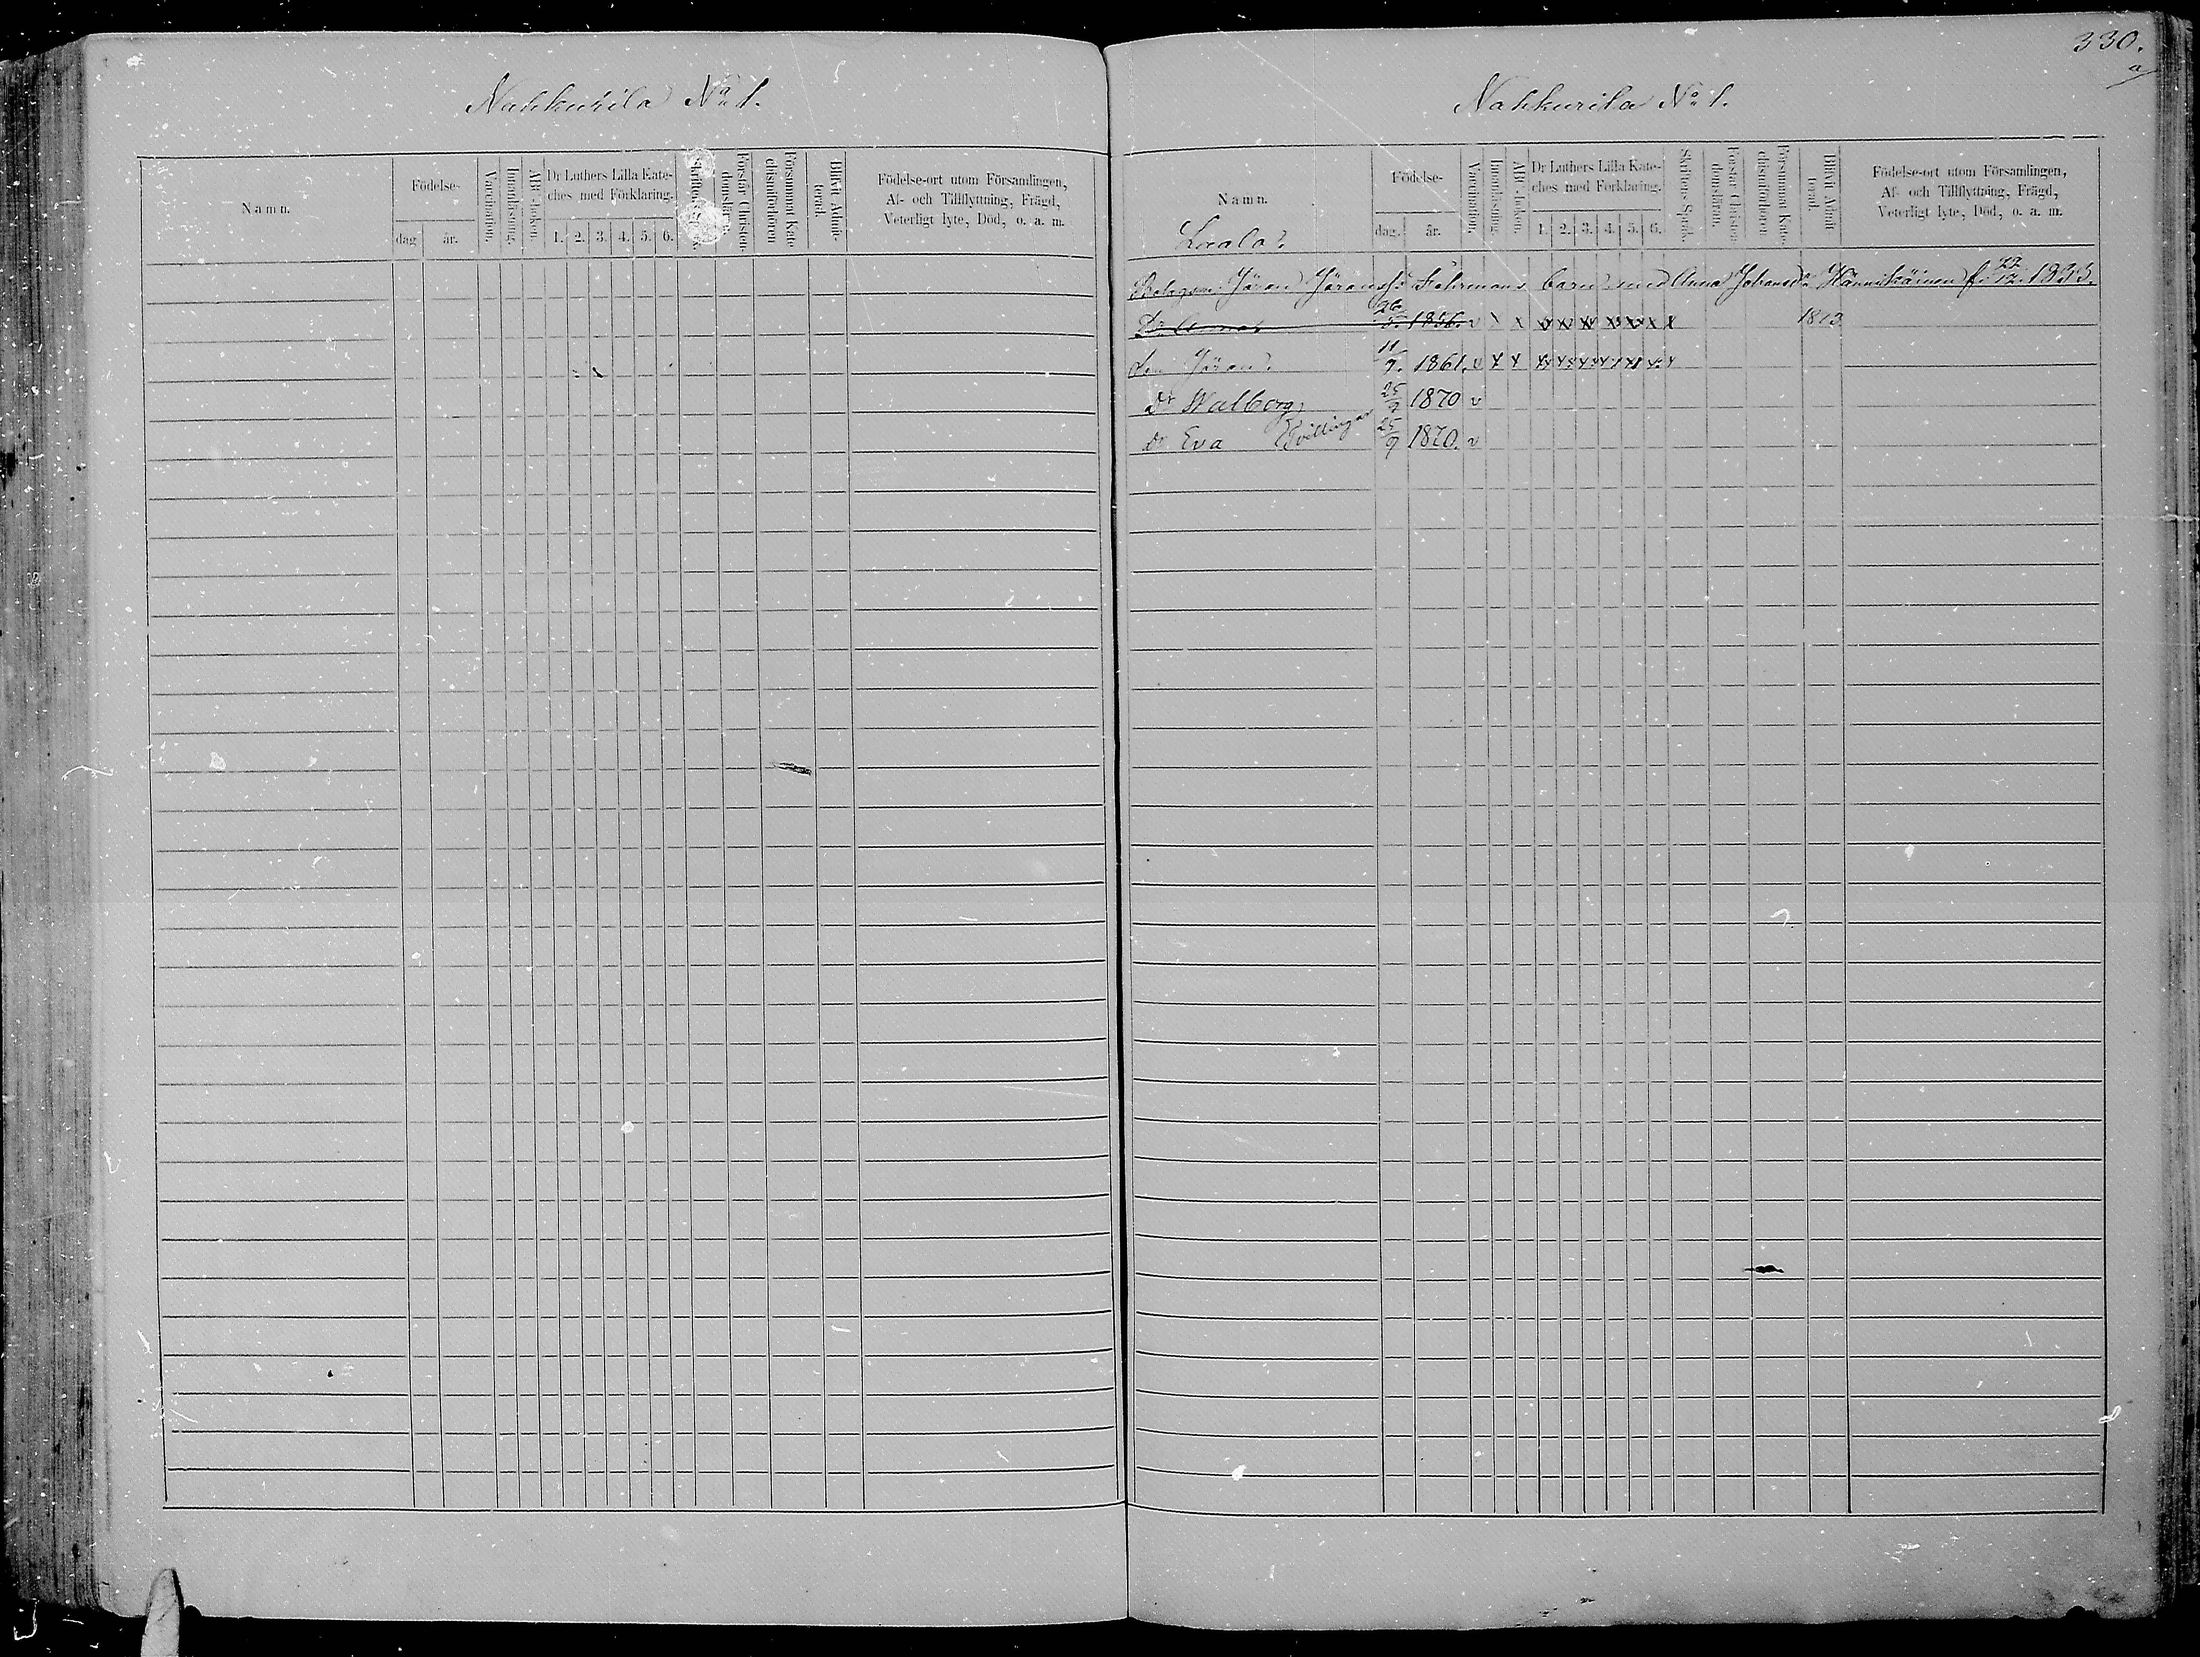 330.
a
Nahkurila No 1.
Namn.
Födelse-
dag
år.
Vaccination.
Innanläsning.
ABC-boken.
Dr Luthers Lilla Kate-
ches med Förklaring.
1. 2. 3. 4. 5. 6.
Förstår Christen-
domsläran.
Försummat Kate-
chismiförhören
Blifvit Admit-
terad.
Födelse-ort utom Församlingen,
Af- och Tillflyttning, Frägd,
Veterligt lyte, Död, o. a. m.
Nahkurila No 1.
Namn.
Födelse-
dag.
år.
Vaccination.
Innanläsning
ABC-boken.
Dr Luthers Lilla Kate-
ches med Förklaring.
1. 2. 3. 4. 5. 6.
Skriftens Språk.
Förstår Christen-
domsläran.
Försummat Kate-
chismiförhören
Blifvit Admit-
terad.
Födelse-ort utom Församlingen,
Af- och Tillflyttning, Frägd,
Veterligt lyte, Död, o. a. m.
Jöran Jöranss: Fohrmans barn med Anna Johansdr Hännikäinen f. 22/12. 1833.
Dr Anna 26/5. 1856. v x x x x x x x x x 1873
Son Jöran. 11/9. 1861. v x x
dr Walborg 25/9 1870 v
Tvillingar
dr Eva 25/9 1870. v